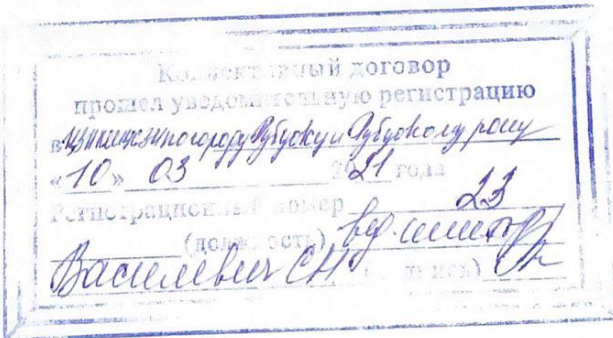 Коллективный договор
прошел уведомительную регистрацию
в по городу и району
«10» 03 2021 года
Регистрационный номер 23
(должность) вед. инсп.
Василевич СН (подпись)